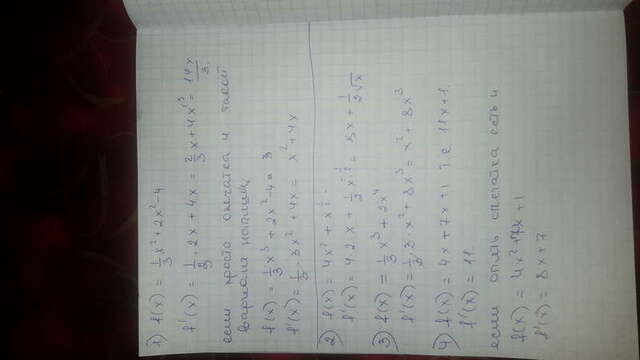 1) f(x) = 1/3 x² + 2x² - 4
f'(x) = 1/3 · 2x + 4x = 2/3 x + 4x = 14x/3
если просто опечатка и такой
вариант напишем,
f(x) = 1/3 x³ + 2x² - 4
f'(x) = 1/3 · 3x² + 4x = x² + 4x
2) f(x) = 4x² + x
f'(x) = 4·2x + 1/2 x = 8x + 1/2√x
3) f(x) = 1/3 x³ + 2x⁴
f'(x) = 1/3 · 3 · x² + 8x³ = x² + 8x³
4) f(x) = 4x + 7x + 1 т.е 11x + 1.
f'(x) = 11
если опять опечатка есть и
f(x) = 4x² + 7x + 1
f'(x) = 8x + 7